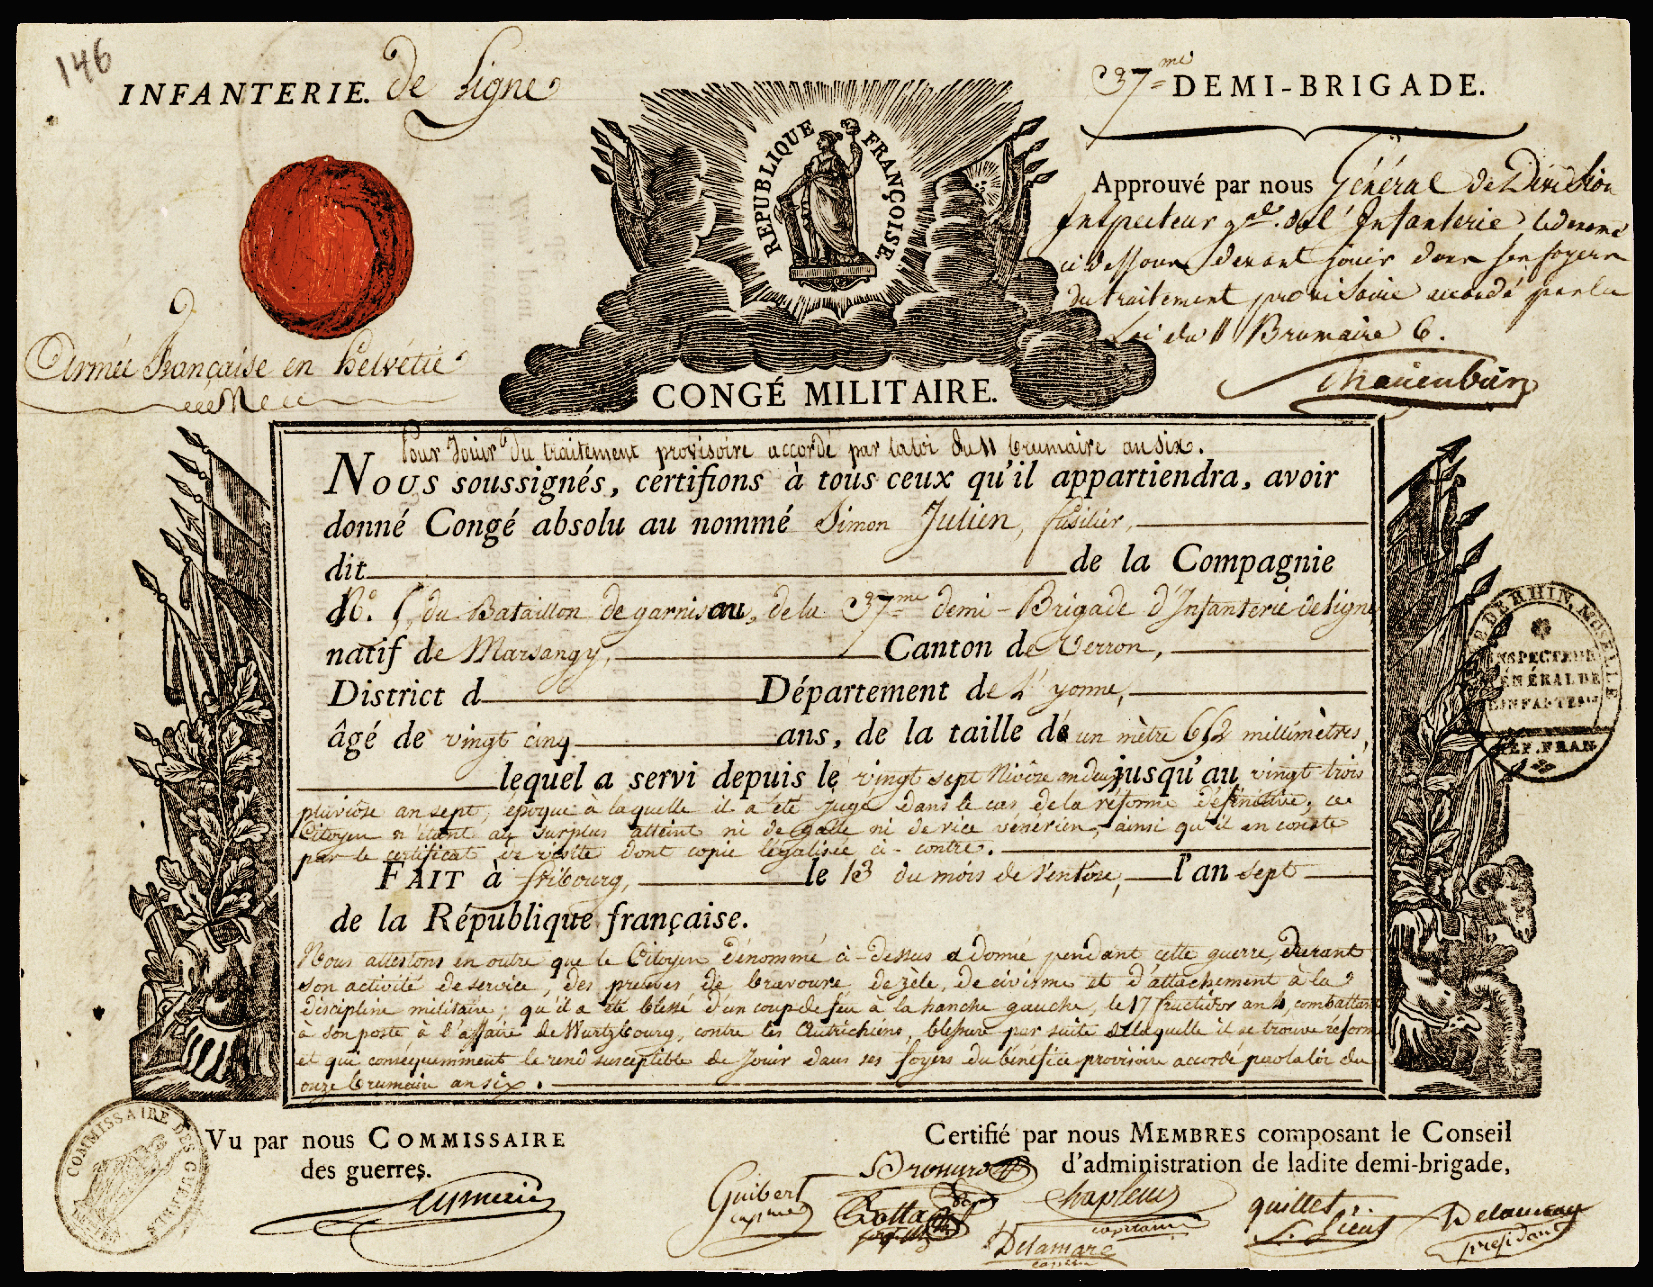 146
INFANTERIE. de Ligne
37me DEMI-BRIGADE.
RÉPUBLIQUE FRANÇOISE.
Approuvé par nous Général de Division
Inspecteur gal. de l'Infanterie le denomé
ci dessous devant jouir dans ses foyers
du traitement provisoire accordé par la
Loi du 11 Brumaire 6.
Schauenburg
Armée Française en Helvétie
CONGÉ MILITAIRE.
Pour Jouir du traitement provisoire accordé par la loi du 11 brumaire an six.
Nous soussignés, certifions à tous ceux qu'il appartiendra, avoir
donné Congé absolu au nommé Simon Julien, fusilier,
dit de la Compagnie
No. 5, du Bataillon de garnison, de la 37me demi-Brigade d'Infanterie de ligne
natif de Marsangy, Canton de Verron,
District d Département de L'yonne,
âgé de vingt cinq ans, de la taille de un mètre 652 millimètres,
lequel a servi depuis le vingt sept Nivôse an deux jusqu'au vingt trois
pluviôse an sept, époque à laquelle il a été jugé dans le cas de la réforme définitive, ce
Citoyen n'étant au surplus atteint ni de galle ni de vice vénérien, ainsi qu'il en conste
par le certificat de visitte dont copie légalisée ci-contre.
FAIT à fribourg, le 13 du mois de Ventôse, l'an sept
de la République française.
Nous attestons en outre que le Citoyen dénommé ci-dessus a donné pendant cette guerre, durant
son activité de service, des preuves de bravoure, de zèle, de civisme et d'attachement à la
discipline militaire; qu'il a été blessé d'un coup de feu à la hanche gauche, le 17 fructidor an 4, combattant
à son poste à l'affaire de Wurtzbourg, contre les Autrichiens, blessure par suite de laquelle il se trouve réformé
et qui conséquemment le rend susceptible de Jouir dans ses foyers du bénéfice provisoire accordé par la loi du
onze brumaire an six.
DE RHIN, MOSELLE
INSPECTEUR
GÉNÉRAL DE
L'INFANTERIE
RÉP. FRAN.
COMMISSAIRE DES GUERRES
Vu par nous COMMISSAIRE
des guerres.
Certifié par nous MEMBRES composant le Conseil
d'administration de ladite demi-brigade,
Guibert
Chapleur
capitaine
quillet
S. Lieut
Delamare
Delaunay
president